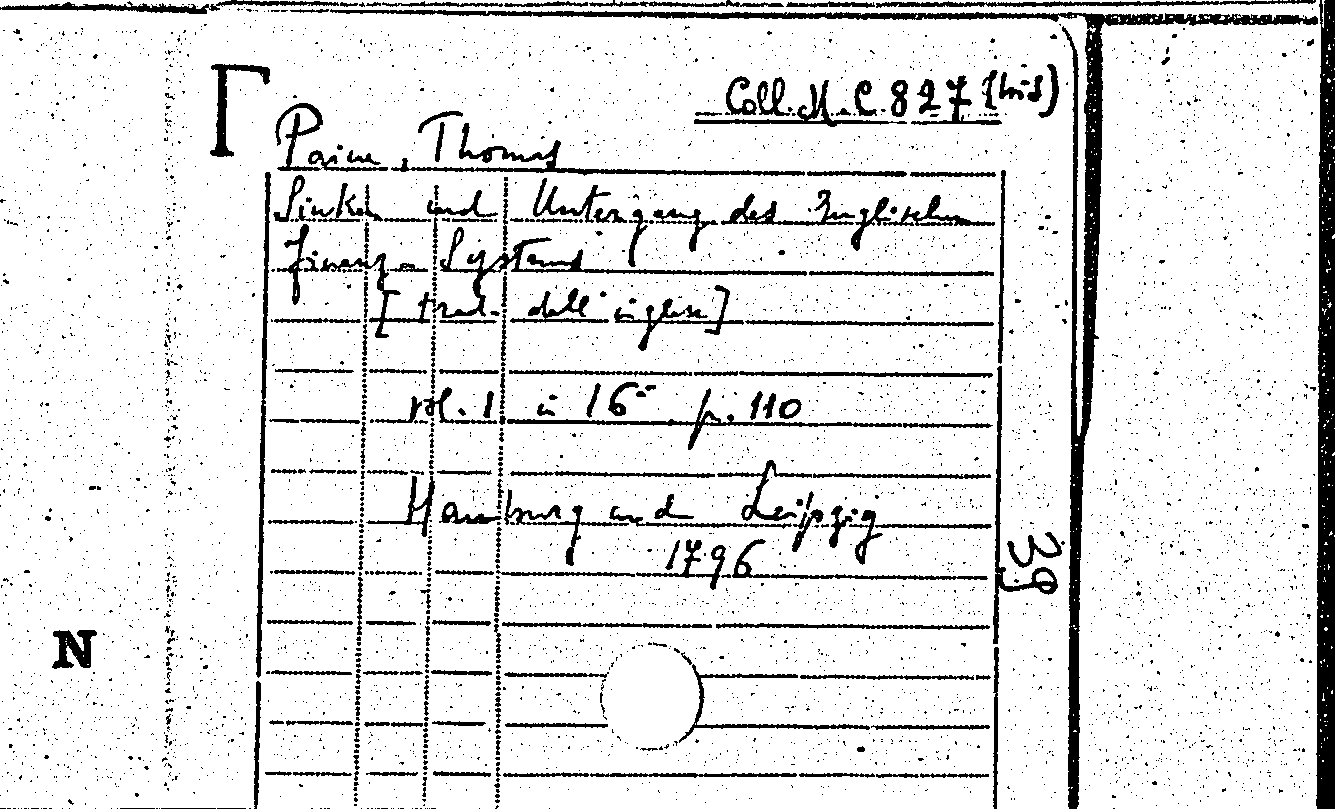 Coll. M. C. 827 (bis)
Paine, Thomas
Sinken und Untergang des Englischen
Finanz-Systems
[trad. dall'inglese]
vol. 1 in 16° pp. 110
Hamburg und Leipzig
1796
39
N